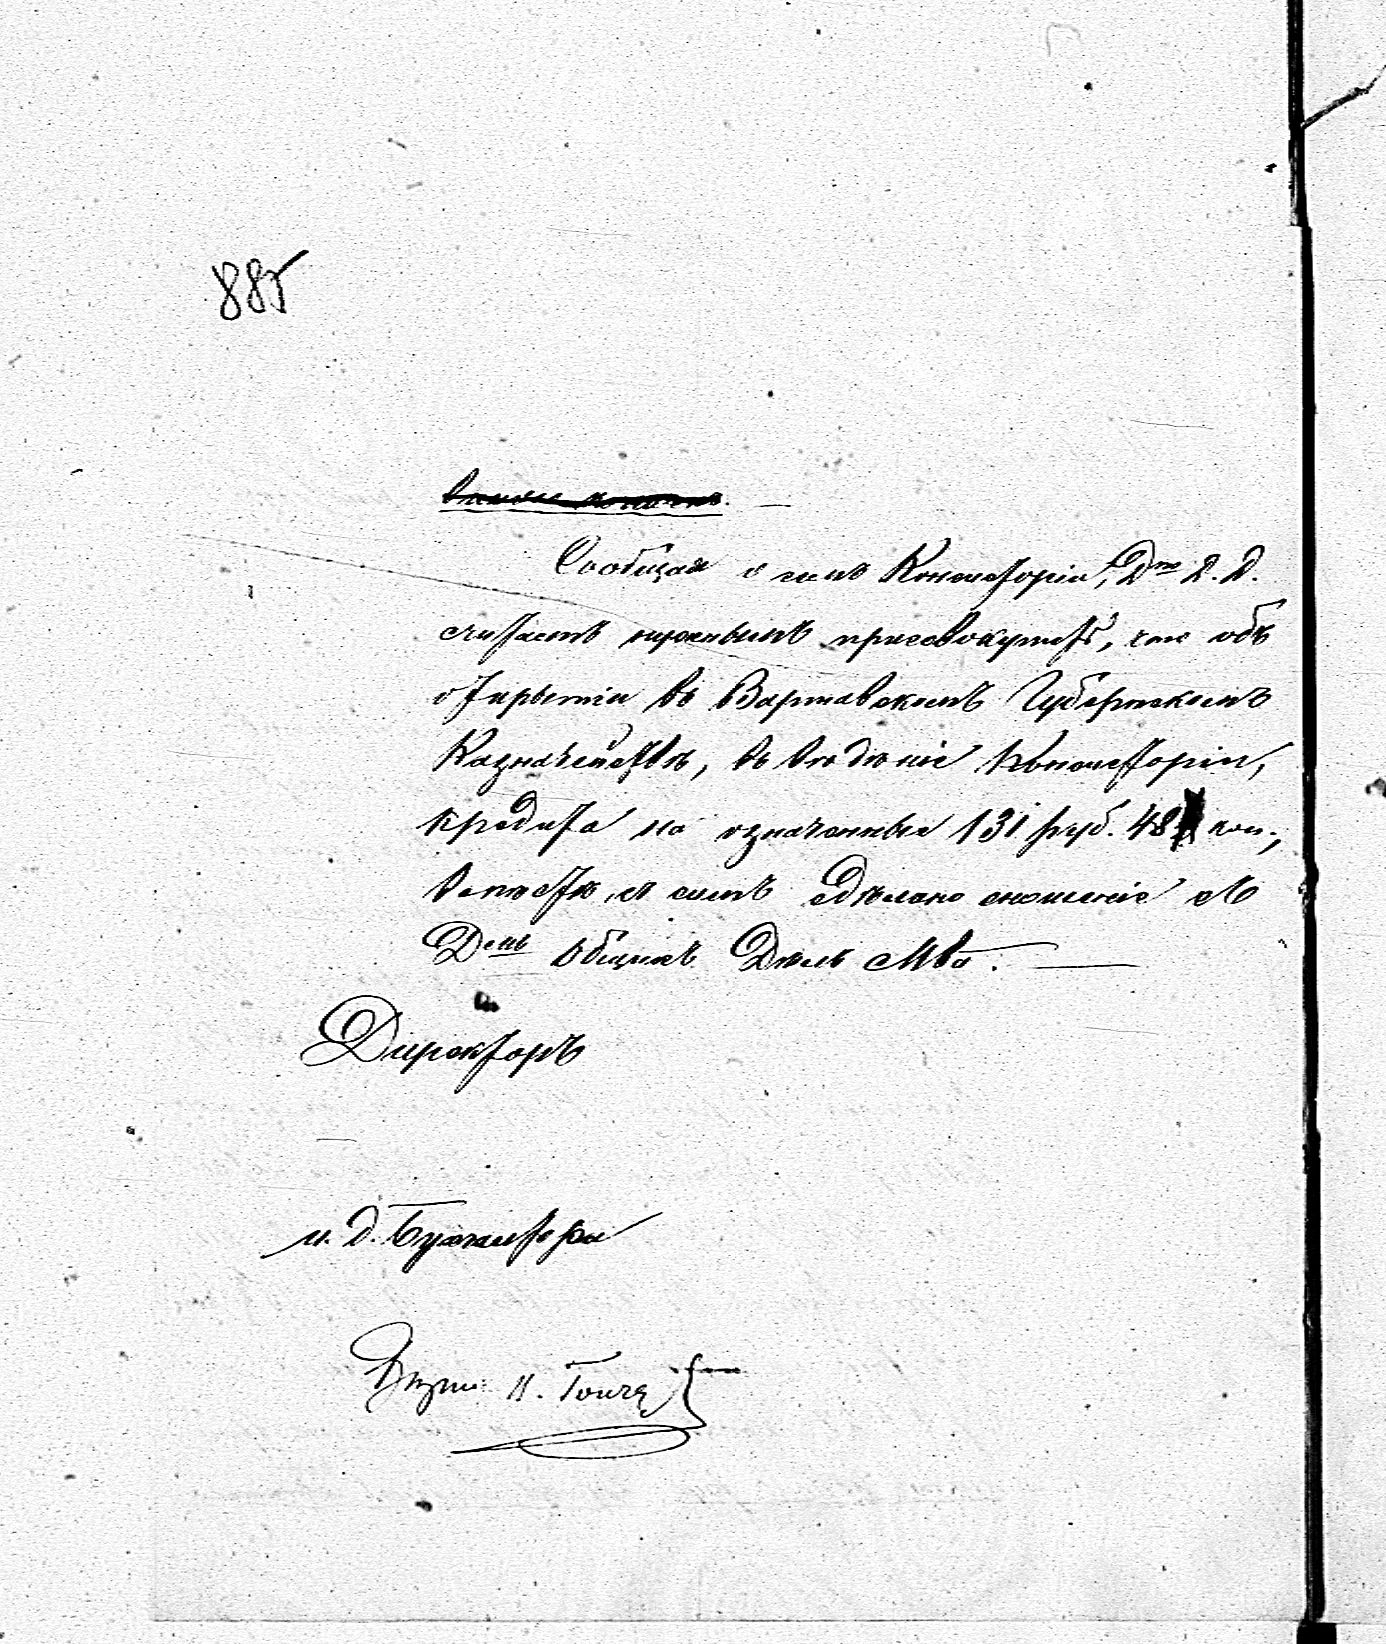 885
Сообщая о семъ Консисторіи, Дто Д. Д.
считаетъ нужнымъ присовокупить, что объ
открытіи въ Варшавскомъ Губернскомъ
Казначействѣ, въ вѣдѣніе Консисторіи,
кредита на означенные 131 руб. 48 коп.,
вмѣстѣ съ симъ сдѣлано сношеніе съ
Демъ Общихъ Дѣлъ Мва.
Директоръ
и. д. Бухгалтера